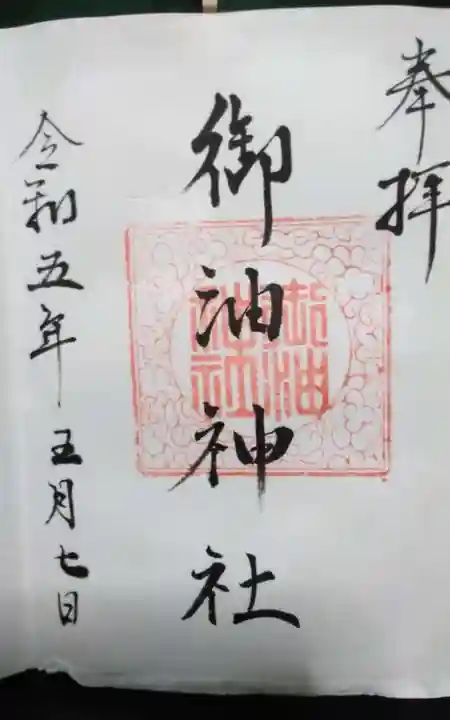 奉拝
御油神社
御油神社
令和五年五月七日